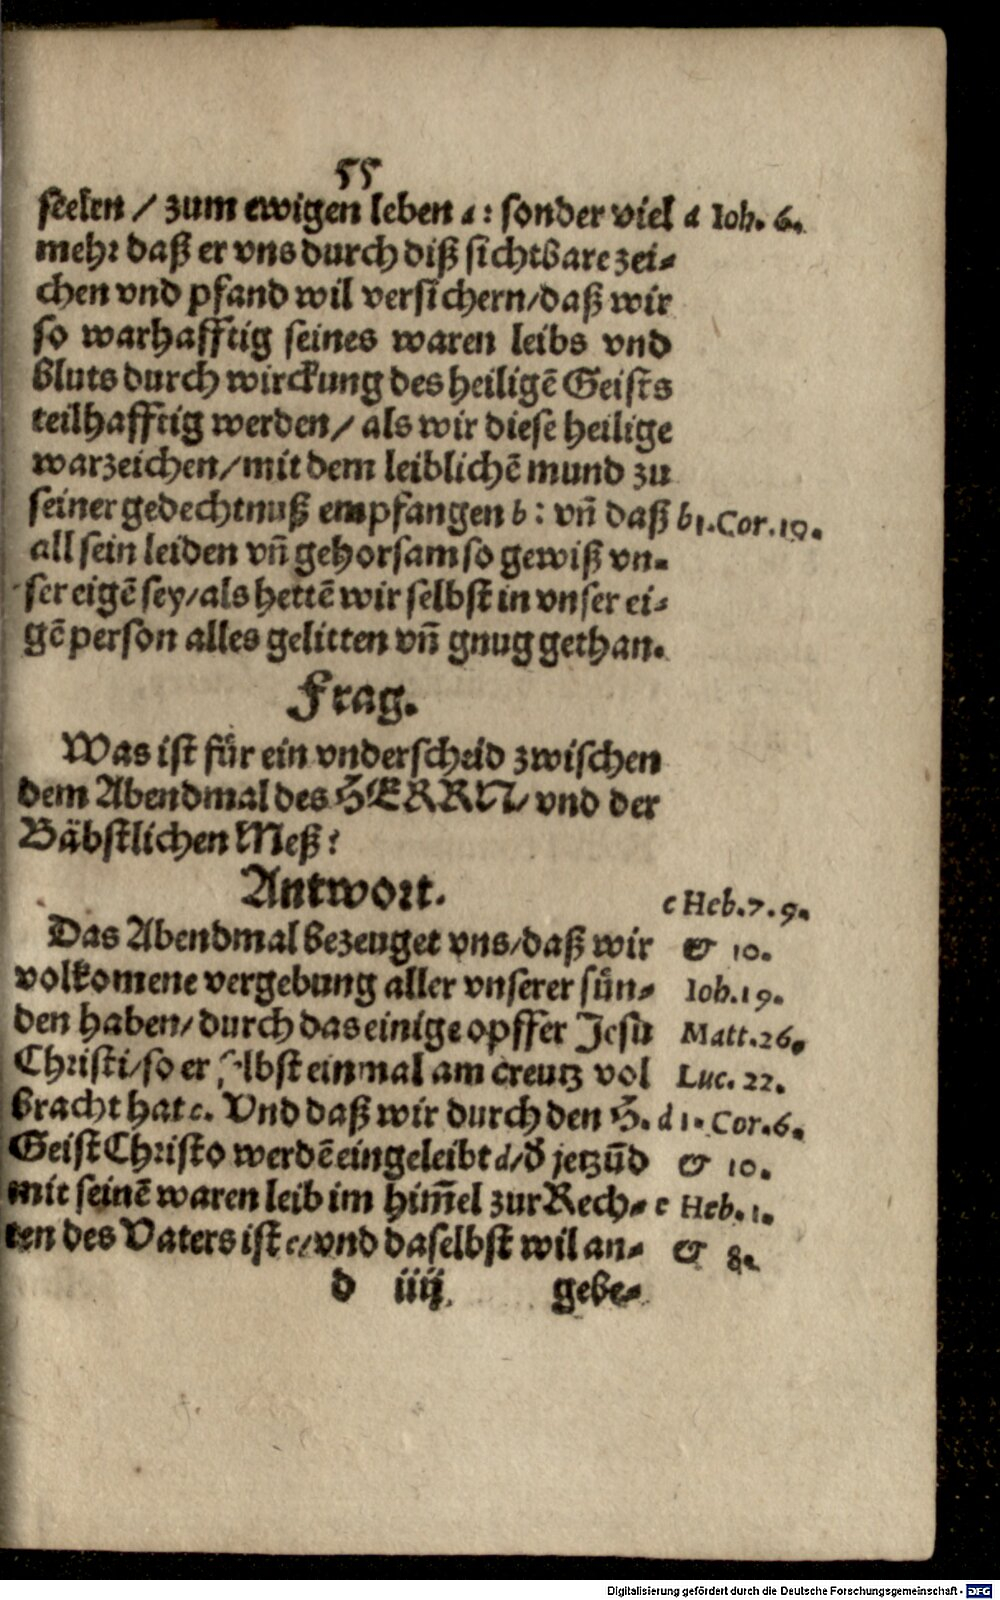 55
seelen / zum ewigen leben a : sonder viel a Ioh. 6.
mehr daß er vns durch diß sichtbare zei-
chen vnd pfand wil versichern/daß wir
so warhafftig seines waren leibs vnd
bluts durch wirckung des heiligē Geists
teilhafftig werden/ als wir diese heilige
warzeichen/mit dem leiblichē mund zu
seiner gedechtnuß empfangen b : vñ daß b 1.Cor.10.
all sein leiden vñ gehorsam so gewiß vn-
ser eigē sey/als hettē wir selbst in vnser ei-
gē person alles gelitten vñ gnug gethan.
Frag.
Was ist für ein vnderscheid zwischen
dem Abendmal des HERRN/ vnd der
Bäbstlichen Meß?
Antwort.
c Heb.7.9.
Das Abendmal bezeuget vns/daß wir & 10.
volkomene vergebung aller vnserer sün- Ioh.19.
den haben/durch das einige opffer Jesu Matt.26.
Christi/so er selbst einmal am creutz vol Luc. 22.
bracht hat c. Vnd daß wir durch den H. d 1. Cor.6.
Geist Christo werdē eingeleibt d/d̄ jetzūd & 10.
mit seinē waren leib im him̄el zur Rech- e Heb.1.
ten des Vaters ist e/vnd daselbst wil an- & 8.
d iiij gebe-
Digitalisierung gefördert durch die Deutsche Forschungsgemeinschaft - DFG